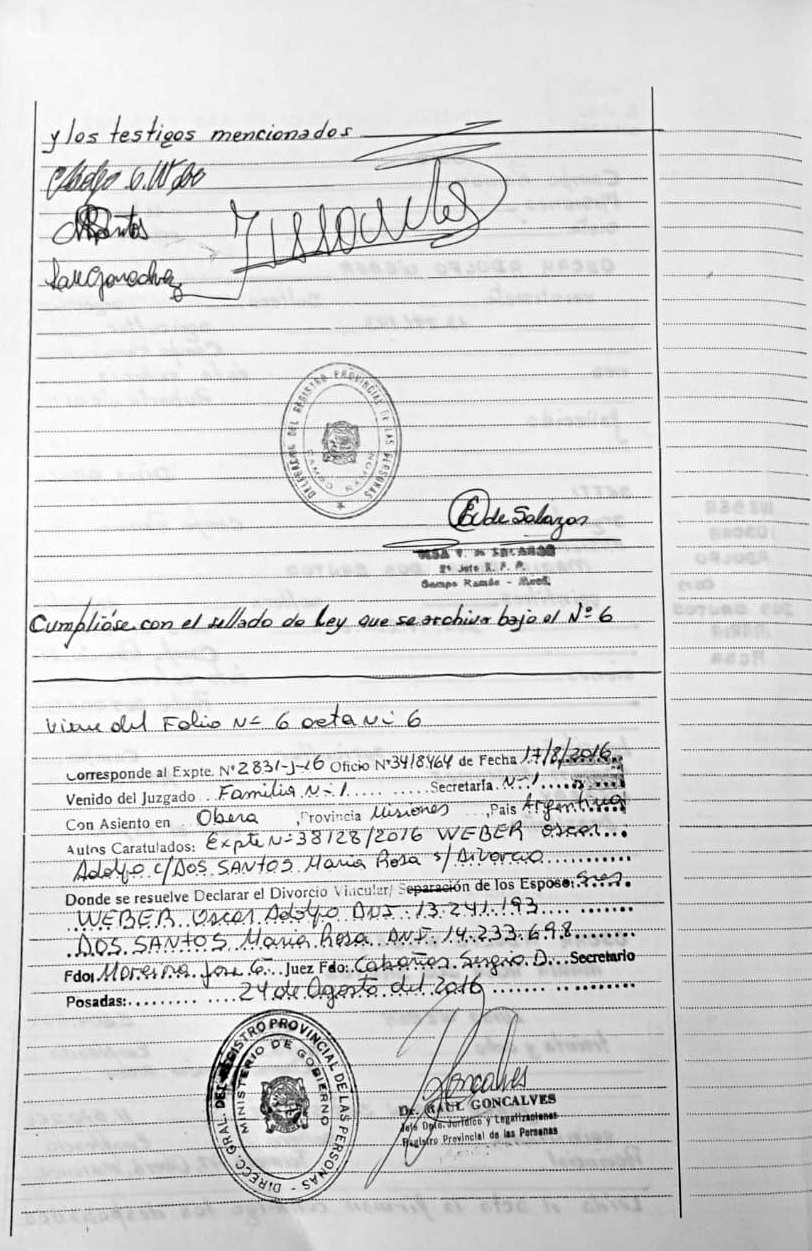 y los testigos mencionados
DELEGACION DEL REGISTRO PROVINCIAL DE LAS PERSONAS
CAMPO RAMON
E de Salazar
2º Jefe R. P. P.
Campo Ramón - Mnes.
Cumplióse con el sellado de Ley que se archiva bajo el Nº 6
Viene del Folio Nº 6 acta Nº 6
Corresponde al Expte. Nº 2831-J-16 Oficio Nº 3418464 de Fecha 17/8/2016
Venido del Juzgado Familia Nº 1 Secretaría Nº 1
Con Asiento en Obera, Provincia Misiones, Pais Argentina
Autos Caratulados: Expte Nº 38128/2016 WEBER Oscar
Adolfo c/DOS SANTOS Maria Rosa s/Divorcio
Donde se resuelve Declarar el Divorcio Vincular/ Separación de los Esposos: Sres.
WEBER Oscar Adolfo DNI. 13.241.193
DOS SANTOS Maria Rosa DNI. 14.233.698
Fdo: Moreira Jose G. Juez Fdo: Cabañas Sergio D. Secretario
Posadas: 24 de Agosto del 2016
DIRECC. GRAL. DEL REGISTRO PROVINCIAL DE LAS PERSONAS
MINISTERIO DE GOBIERNO
Goncalves
Dr. RAUL GONCALVES
Jefe Dpto. Jurídico y Legalizaciones
Registro Provincial de las Personas